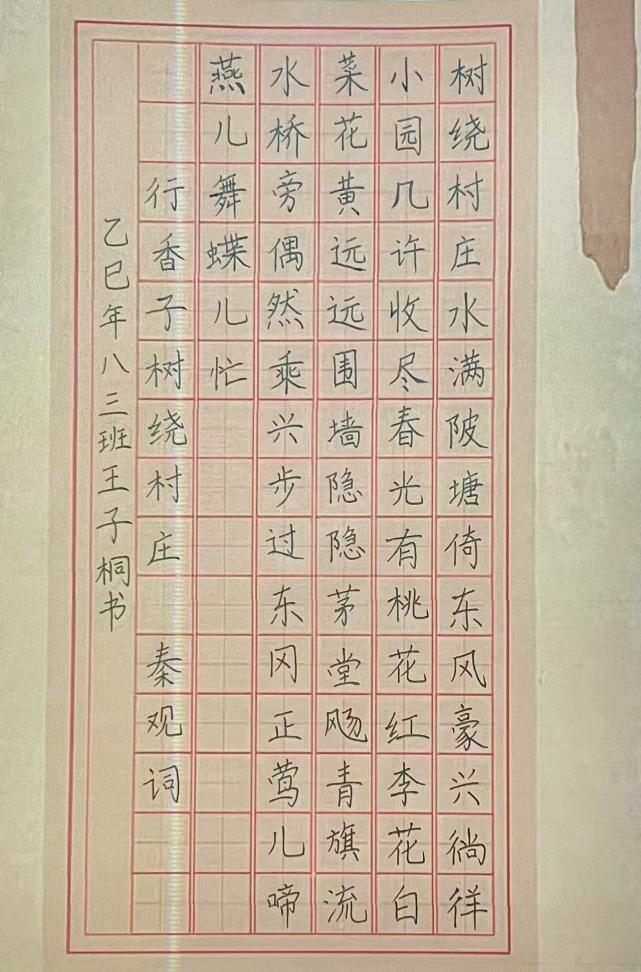 树绕村庄水满陂塘倚东风豪兴徜徉
小园几许收尽春光有桃花红李花白
菜花黄远远围墙隐隐茅堂飏青旗流
水桥旁偶然乘兴步过东冈正莺儿啼
燕儿舞蝶儿忙
行香子树绕村庄 秦观词
乙巳年八三班王子桐书